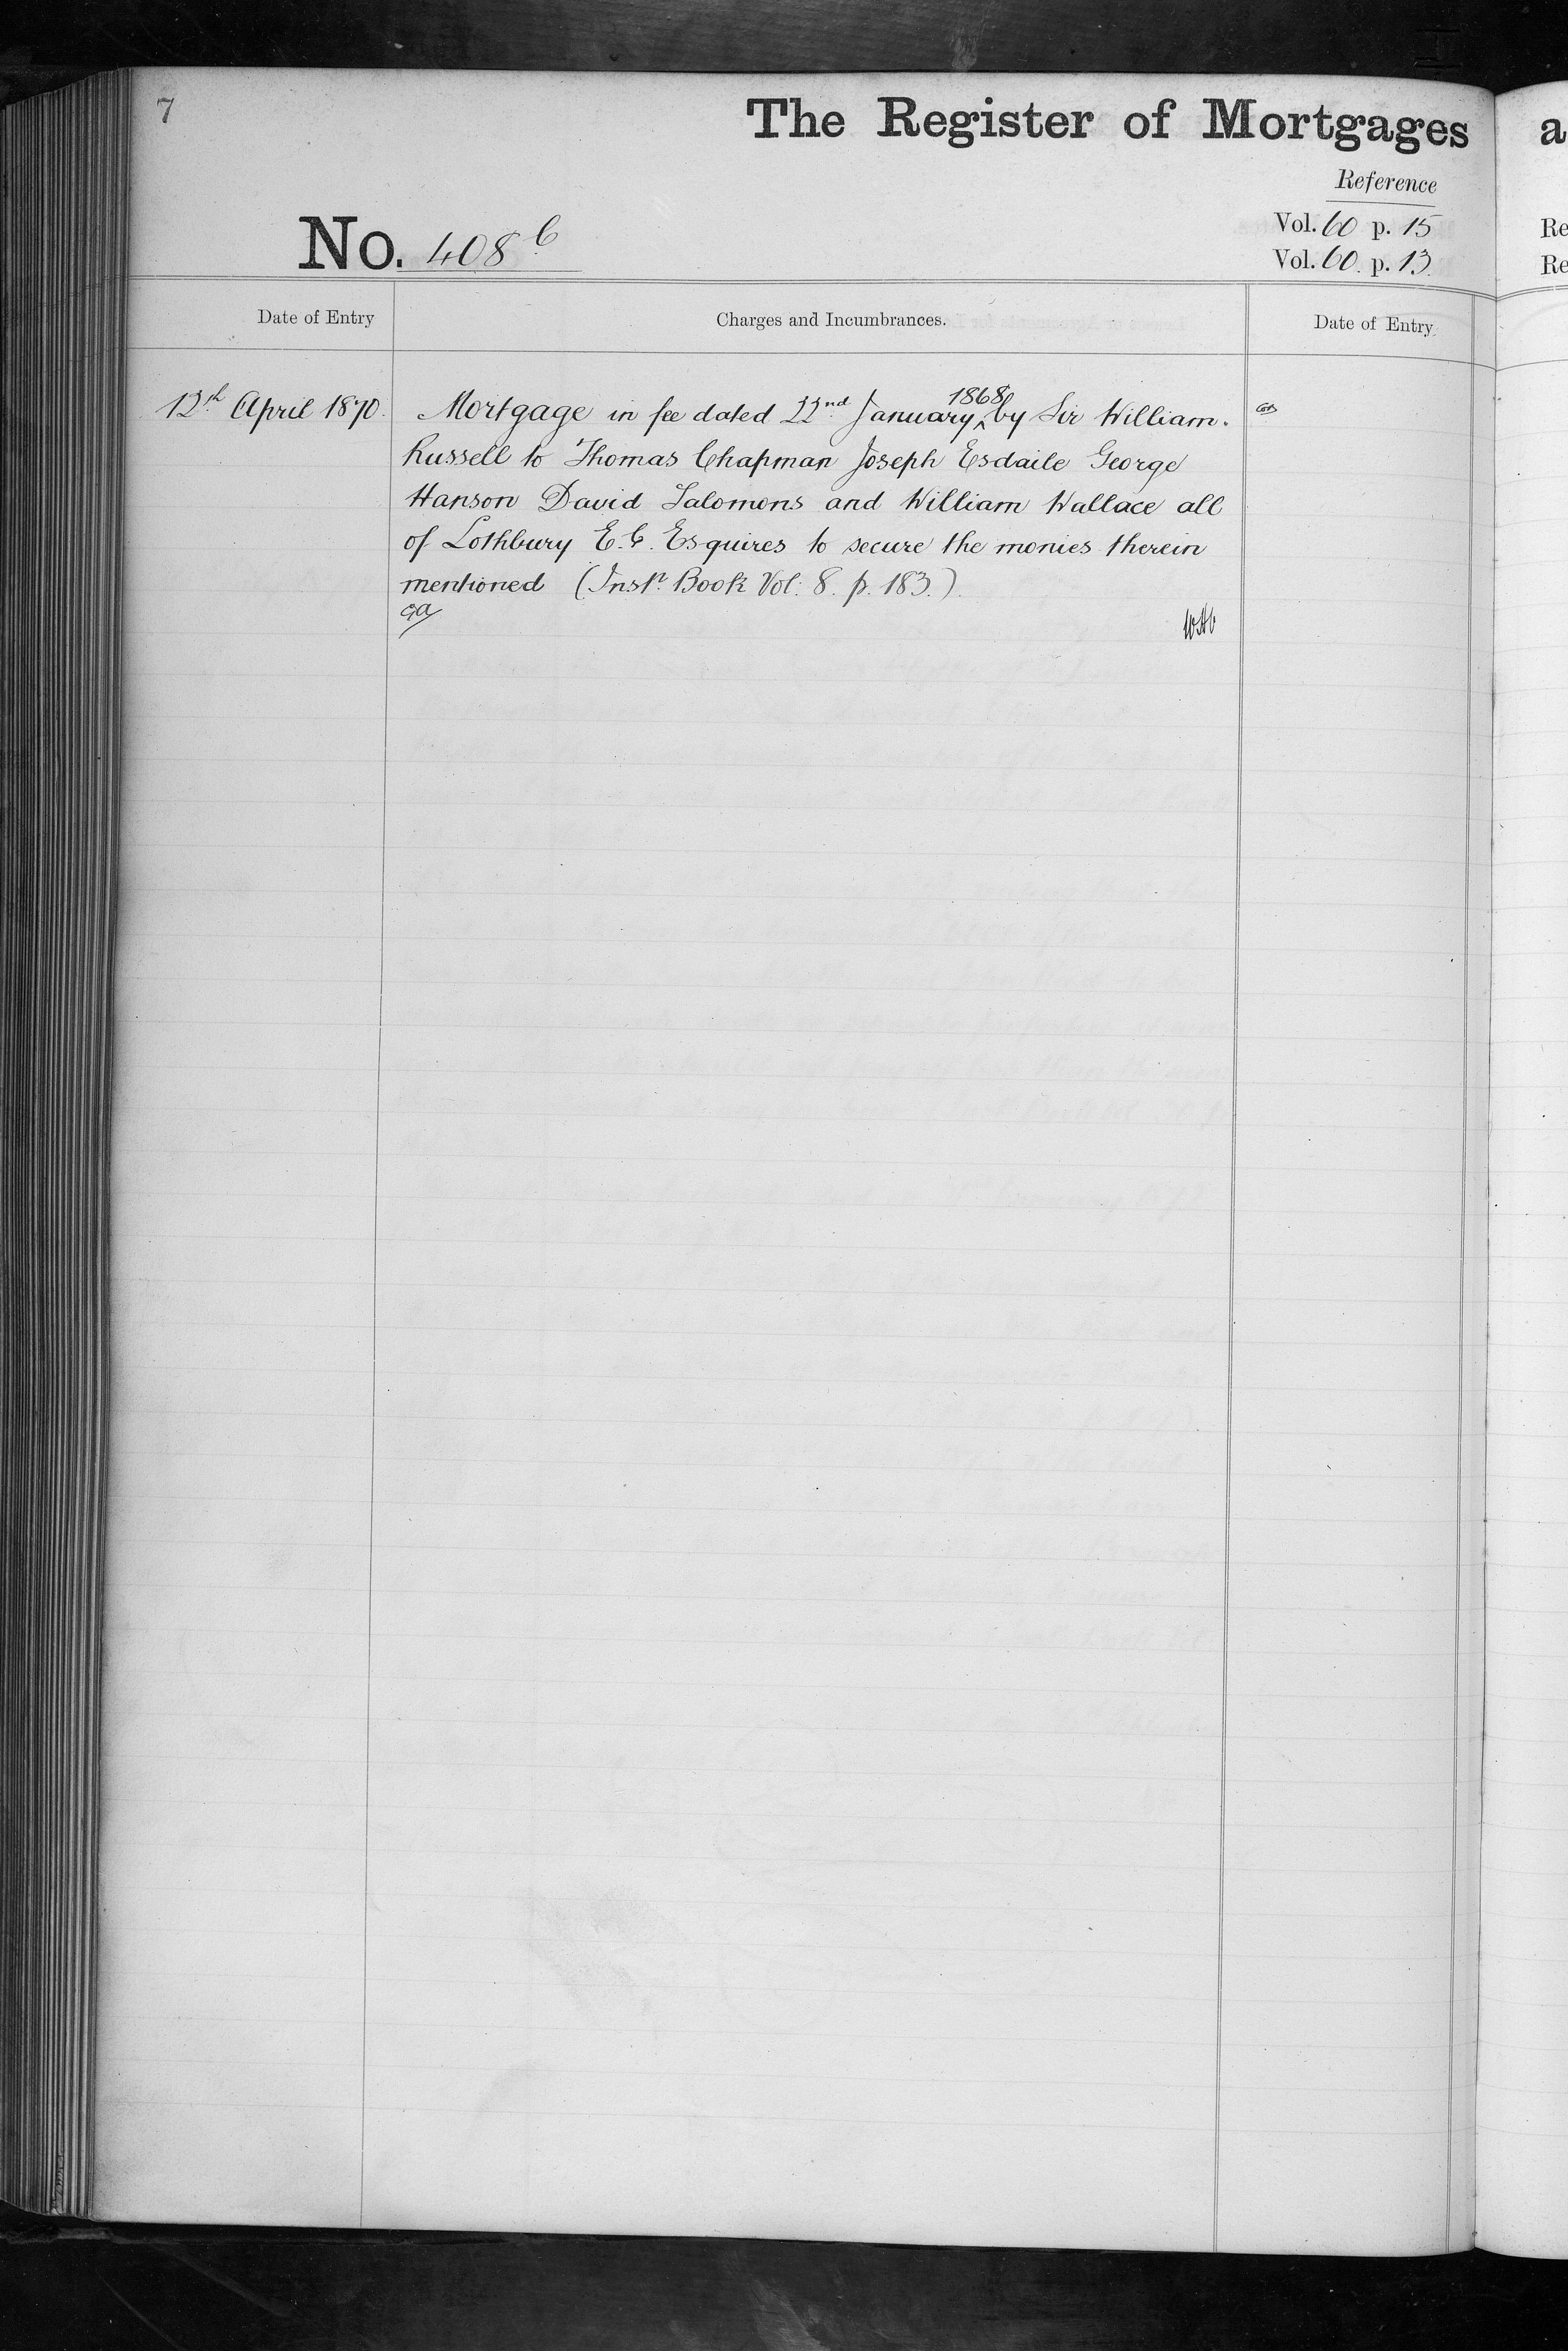 7
The Register of Mortgages
a
Reference
No. 408 C
Vol. 60 p. 15
Re
Vol. 60. p. 13.
Re
Date of Entry
Charges and Incumbrances.
Date of Entry
12th April 1870.
Mortgage in fee dated 22nd January 1868 by Sir William
Russell to Thomas Chapman Joseph Esdaile George
Hanson David Salomons and William Wallace all
of Lothbury E.C. Esquires to secure the monies therein
mentioned (Instr. Book Vol: 8. p. 183.)